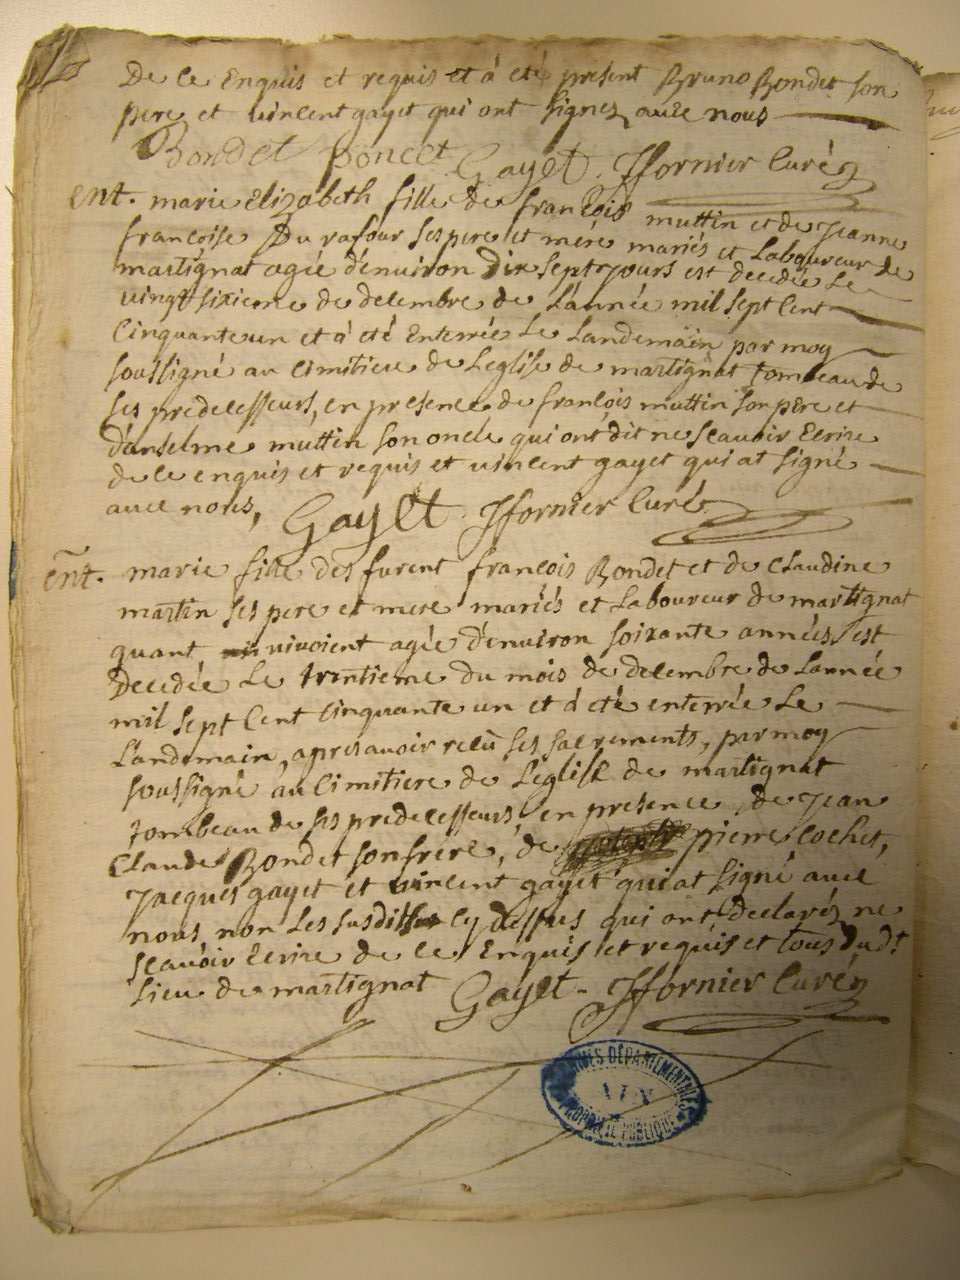 De ce enquis et requis et á eté present Bruno Bondet son
pere et vincent gayet qui ont signez avec nous
Bondet poncet Gayet. Jfornier Curé
ent. marie Elizabeth fille de francois muttin et de Jeanne
francoise Du rafour ses pere et mere mariés et Laboureur de
martignat agée d'environ Dix sept Jours est decedée Le
vingt sixieme de decembre de L'année mil sept Cent
Cinquante un et á été Enterrée Le Landemain par moy
soussigné au Cimitiere de L'eglise de martignat tombeau de
ses predecesseurs, en presence de francois muttin son pere et
d'anselme muttin son oncle qui ont dit ne scavoir Ecrire
de ce enquis et requis et vincent gayet qui at signé
avec nous, Gayet. Jfornier Curé
ent. marie fille des furent francois Bondet et de Claudine
martin ses pere et mere mariés et Laboureur de martignat
quant vivoient agée d'environ soixante années est
Decedée Le trentieme du mois de decembre de L'année
mil sept Cent Cinquante un et á eté enterrée Le
Landemain, apres avoir recu ses sacrements, par moy
soussigné au Cimitiere de L'eglise de martignat
tombeau de ses predecesseurs, en presence de Jean
Claude Bondet son frere, de pierre Cochet,
Jacques gayet et vincent gayet qui at signé avec
nous non Les susdits Cy dessus qui ont declarez ne
scavoir Ecrire de ce Enquis et requis et tous Dud.t
Lieu de martignat Gayet - Jfornier Curé
ARCHIVES DÉPARTEMENTALES
AIN
PROPRIÉTÉ PUBLIQUE